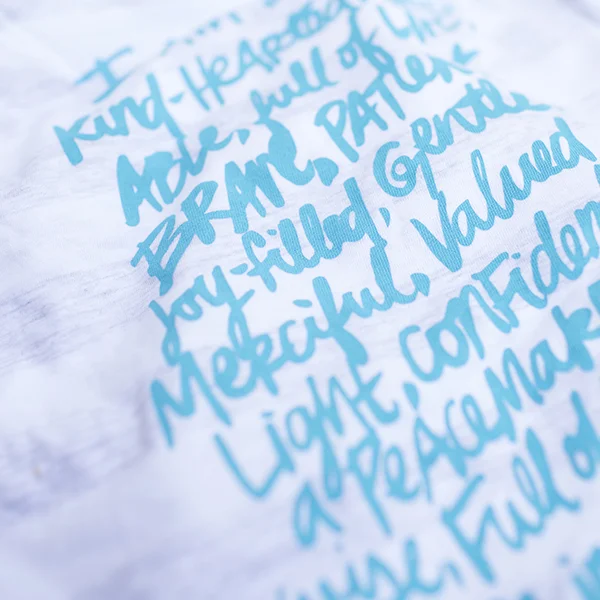 I am
Kind-Hearted
Able, full of Life,
BRAVE, PATIENT
Joy-filled, Gentle
Merciful, Valued
Light, confiden
a PEACEMAKE
wise, Full of
in